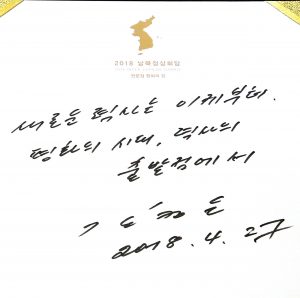 2018 남북정상회담
평화의 집
새로운 력사는 이제부터.
평화의 시대, 력사의
출발점에서
김정은
2018. 4. 27